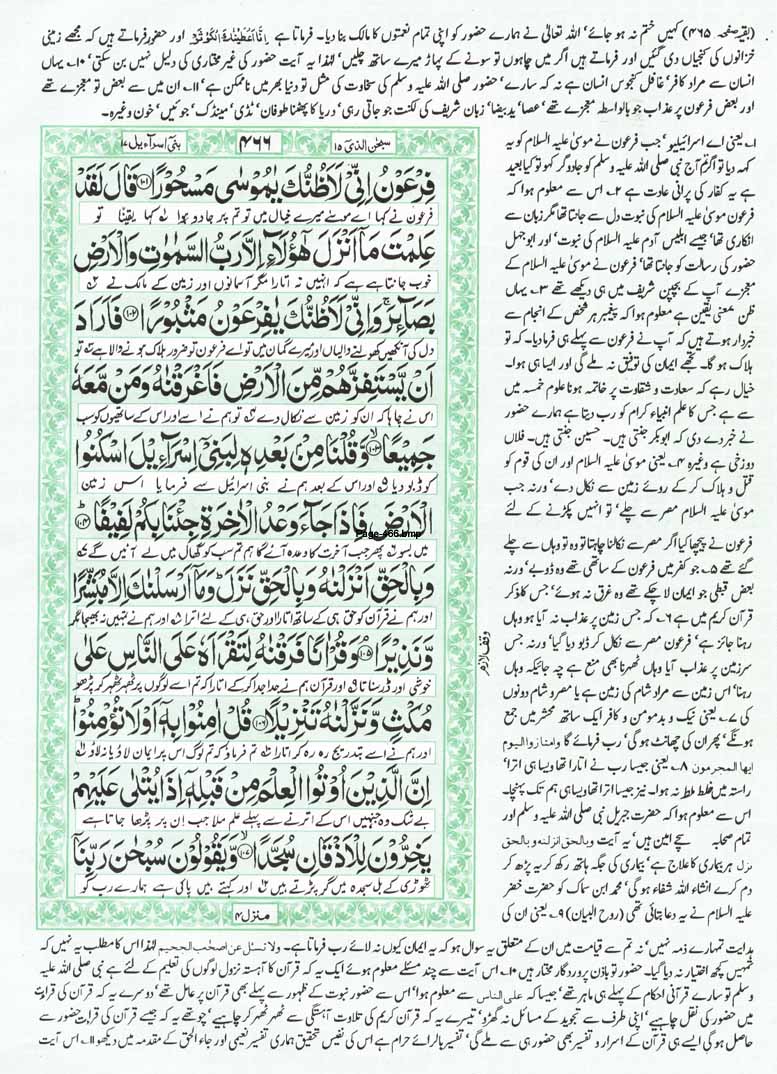 (بقیہ صفحہ ۴۶۵) کہیں ختم نہ ہو جائے' اللہ تعالیٰ نے ہمارے حضور کو اپنی تمام نعمتوں کا مالک بنا دیا۔ فرماتا ہے اِنَّا اَعْطَیْنٰكَ الْكَوْثَرَ اور حضور فرماتے ہیں کہ مجھے زمینی
خزانوں کی کنجیاں دی گئیں اور فرماتے ہیں اگر میں چاہوں تو سونے کے پہاڑ میرے ساتھ چلیں' لہٰذا یہ آیت حضور کی غیر مختاری کی دلیل نہیں بن سکتی' ۱۰۔ یہاں
انسان سے مراد کافر' غافل کنجوس انسان ہے نہ کہ سارے' حضور صلی اللہ علیہ وسلم کی سخاوت کی مثل تو دنیا بھر میں ناممکن ہے' ۱۱۔ ان میں سے بعض تو معجزے تھے
اور بعض فرعون پر عذاب جو بالواسطہ معجزے تھے' عصا' ید بیضا' زبان شریف کی لکنت جو جاتی رہی' دریا کا پھٹنا طوفان' ٹڈی' مینڈک' جوئیں' خون وغیرہ۔
بنی اسرآءیل ۱۷
۴۶۶
سبحٰن الذی ۱۵
فِرْعَوْنُ اِنِّیْ لَاَظُنُّكَ یٰمُوْسٰى مَسْحُوْرًا ﴿۱۰۱﴾ قَالَ لَقَدْ
فرعون نے کہا اے موسٰے میرے خیال میں تو تم پر جادو ہوا کہا یقینًا تو
عَلِمْتَ مَاۤ اَنْزَلَ هٰۤؤُلَآءِ اِلَّا رَبُّ السَّمٰوٰتِ وَ الْاَرْضِ
خوب جانتا ہے کہ انہیں نہ اتارا مگر آسمانوں اور زمین کے مالک نے
بَصَآىٕرَ ۚ وَ اِنِّیْ لَاَظُنُّكَ یٰفِرْعَوْنُ مَثْبُوْرًا ﴿۱۰۲﴾ فَاَرَادَ
دل کی آنکھیں کھولنے والیاں اور میرے گمان میں تو اے فرعون تو ضرور ہلاک ہونے والا ہے تو
اَنْ یَّسْتَفِزَّهُمْ مِّنَ الْاَرْضِ فَاَغْرَقْنٰهُ وَ مَنْ مَّعَهٗ
اس نے چاہا کہ ان کو زمین سے نکال دے تو ہم نے اسے اور اس کے ساتھیوں کو سب
جَمِیْعًا ﴿۱۰۳﴾ وَّ قُلْنَا مِنْۢ بَعْدِهٖ لِبَنِیْۤ اِسْرَآءِیْلَ اسْكُنُوا
کو ڈبو دیا اور اس کے بعد ہم نے بنی اسرائیل سے فرمایا اس زمین
الْاَرْضَ فَاِذَا جَآءَ وَعْدُ الْاٰخِرَةِ جِئْنَا بِكُمْ لَفِیْفًا ﴿۱۰۴﴾
Page-466.bmp
میں بسو پھر جب آخرت کا وعدہ آئے گا ہم تم سب کو گھال میل لے آئیں گے
وَ بِالْحَقِّ اَنْزَلْنٰهُ وَ بِالْحَقِّ نَزَلَ ؕ وَ مَاۤ اَرْسَلْنٰكَ اِلَّا مُبَشِّرًا
اور ہم نے قرآن کو حق ہی کے ساتھ اتارا اور حق ہی کے لئے اترا اور ہم نے تمہیں نہ بھیجا مگر
وَّ نَذِیْرًا ﴿۱۰۵﴾ وَ قُرْاٰنًا فَرَقْنٰهُ لِتَقْرَاَهٗ عَلَى النَّاسِ عَلٰى
خوشی اور ڈر سناتا اور قرآن ہم نے جدا جدا کر کے اتارا کہ تم اسے لوگوں پر ٹھہر ٹھہر کر پڑھو
مُكْثٍ وَّ نَزَّلْنٰهُ تَنْزِیْلًا ﴿۱۰۶﴾ قُلْ اٰمِنُوْا بِهٖۤ اَوْ لَا تُؤْمِنُوْا ؕ
اور ہم نے اسے بتدریج رہ رہ کر اتارا تم فرماؤ کہ تم لوگ اس پر ایمان لاؤ یا نہ لاؤ
اِنَّ الَّذِیْنَ اُوْتُوا الْعِلْمَ مِنْ قَبْلِهٖۤ اِذَا یُتْلٰى عَلَیْهِمْ
بے شک وہ جنہیں اس کے اترنے سے پہلے علم ملا جب ان پر پڑھا جاتا ہے
یَخِرُّوْنَ لِلْاَذْقَانِ سُجَّدًا ﴿۱۰۷﴾ وَّ یَقُوْلُوْنَ سُبْحٰنَ رَبِّنَاۤ
ٹھوڑی کے بل سجدہ میں گر پڑتے ہیں اور کہتے ہیں پاکی ہے ہمارے رب کو
منزل ۴
وقف لازم
۱۔ یعنی اے اسرائیلیو' جب فرعون نے موسیٰ علیہ السلام کو یہ
کہہ دیا تو اگر تم آج نبی صلی اللہ علیہ وسلم کو جادوگر کہو تو کیا بعید
ہے یہ کفار کی پرانی عادت ہے ۲۔ اس سے معلوم ہوا کہ
فرعون موسیٰ علیہ السلام کی نبوت دل سے جانتا تھا مگر زبان سے
انکاری تھا' جیسے ابلیس آدم علیہ السلام کی نبوت' اور ابوجہل
حضور کی رسالت کو جانتا تھا' فرعون نے موسیٰ علیہ السلام کے
معجزے آپ کے بچپن شریف میں ہی دیکھے تھے ۳۔ یہاں
ظن بمعنی یقین ہے معلوم ہوا کہ پیغمبر ہر شخص کے انجام سے
خبردار ہوتے ہیں کہ آپ نے فرعون سے پہلے ہی فرما دیا۔ کہ تو
ہلاک ہو گا۔ تجھے ایمان کی توفیق نہ ملے گی اور ایسا ہی ہوا۔
خیال رہے کہ سعادت و شقاوت پر خاتمہ ہونا علوم خمسہ میں
سے ہے جس کا علم انبیاء کرام کو رب دیتا ہے ہمارے حضور
نے خبر دے دی کہ ابوبکر جنتی ہیں۔ حسین جنتی ہیں۔ فلاں
دوزخی ہے وغیرہ ۴۔ یعنی موسیٰ علیہ السلام اور ان کی قوم کو
قتل و ہلاک کر کے روئے زمین سے نکال دے' ورنہ جب
موسیٰ علیہ السلام مصر سے چلے' تو انہیں پکڑنے کے لئے
فرعون نے پیچھا کیا اگر مصر سے نکالنا چاہتا تو وہ تو وہاں سے چلے
گئے تھے ۵۔ جو کفر میں فرعون کے ساتھی تھے وہ ڈوبے' ورنہ
بعض قبطی جو ایمان لا چکے تھے وہ غرق نہ ہوئے' جس کا ذکر
قرآن کریم میں ہے ۶۔ کہ جس زمین پر عذاب نہ آیا ہو وہاں
رہنا جائز ہے' فرعون مصر سے نکال کر ڈبو دیا گیا' ورنہ جس
سرزمین پر عذاب آیا وہاں ٹھہرنا بھی منع ہے چہ جائیکہ وہاں
رہنا' اس زمین سے مراد شام کی زمین ہے یا مصر و شام دونوں
کی ۷۔ یعنی نیک و بد مومن و کافر ایک ساتھ محشر میں جمع
ہوں گے' پھر ان کی چھانٹ ہو گی' رب فرمائے گا وامتازوا الیوم
ایھا المجرمون ۸۔ یعنی جیسا رب نے اتارا تھا ویسا ہی اترا'
راستہ میں خلط ملط نہ ہوا۔ نیز جیسا اترا تھا ویسا ہی ہم تک پہنچا۔
اس سے معلوم ہوا کہ حضرت جبریل نبی صلی اللہ علیہ وسلم اور
تمام صحابہ سچے امین ہیں' یہ آیت وبالحق انزلنه وبالحق
نزل ہر بیماری کا علاج ہے' بیماری کی جگہ ہاتھ رکھ کر یہ پڑھ کر
دم کرے انشاء اللہ شفاء ہو گی' محمد ابن سماک کو حضرت خضر
علیہ السلام نے یہ دعا بتائی تھی (روح البیان) ۹۔ یعنی ان کی
ہدایت تمہارے ذمہ نہیں' نہ تم سے قیامت میں ان کے متعلق یہ سوال ہو کہ یہ ایمان کیوں نہ لائے رب فرماتا ہے۔ ولا تسئل عن اصحب الجحیم لہٰذا اس کا مطلب یہ نہیں کہ
تمہیں کچھ اختیار نہ دیا گیا۔ حضور تو باذن پروردگار مختار ہیں ۱۰۔ اس آیت سے چند مسئلے معلوم ہوئے ایک یہ کہ قرآن کا آہستہ نزول لوگوں کی تعلیم کے لئے ہے نبی صلی اللہ علیہ
وسلم تو سارے قرآنی احکام کے پہلے ہی ماہر تھے' جیسا کہ علی الناس سے معلوم ہوا' اس سے حضور نبوت کے ظہور سے پہلے بھی قرآن پر عامل تھے' دوسرے یہ کہ قرآن کی قرات
میں حضور کی نقل چاہیے' اپنی طرف سے تجوید کے مسائل نہ گھڑو' تیسرے یہ کہ قرآن کریم کی تلاوت آہستگی سے ٹھہر ٹھہر کر چاہیے' چوتھے یہ کہ جیسے قرآن کی قرات حضور سے
حاصل ہو گی ایسے ہی قرآن کے اسرار و تفسیر بھی حضور ہی سے ملے گی' تفسیر بالرائے حرام ہے اس کی نفیس تحقیق ہماری تفسیر نعیمی اور جاء الحق کے مقدمہ میں دیکھو ۱۱۔ اس آیت